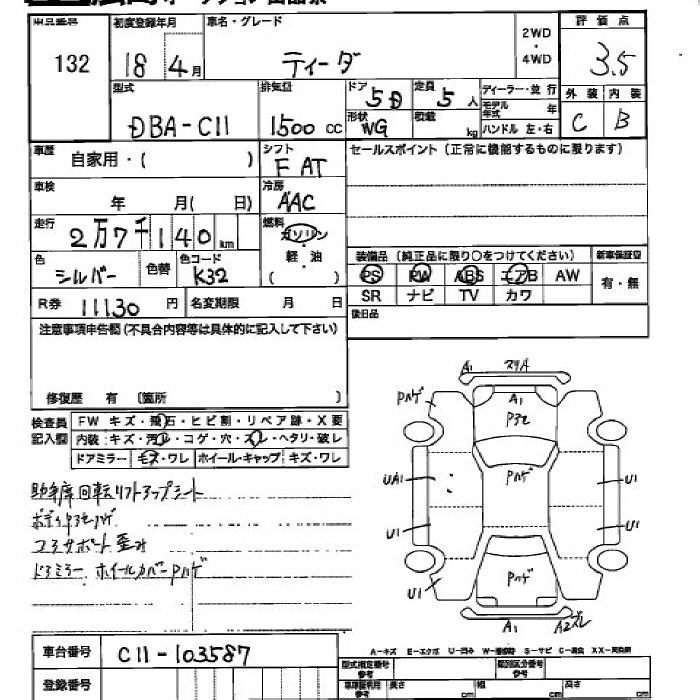 132
初度登録年月
18 4月
車名・グレード
ティーダ
2WD
・
4WD
評価点
3.5
型式
DBA-C11
排気量
1500 cc
ドア
5D
定員
5人
形状
WG
積載
kg
ディーラー・並 行
モデル年式 年
ハンドル 左・右
外装 内装
C B
車歴
自家用・( )
シフト
F AT
セールスポイント(正常に機能するものに限ります)
車検
年 月( 日)
冷房
AAC
走行
2万7千140km
燃料
ガソリン
・
軽・油
( )
色
シルバー
色替
色コード
K32
装備品(純正品に限り○をつけてください)
新車保証空
PS PW ABS エアB AW
有・無
SR ナビ TV カワ
R券 11130 円
名変期限 月 日
後日品
注意事項申告欄(不具合内容等は具体的に記入して下さい)
修復歴 有 〔箇所 〕
検査員
記入欄
FW キズ・飛石・ヒビ割・リペア跡・X要
内装:キズ・汚レ・コゲ・穴・スレ・ヘタリ・破レ
ドアミラー モズ・ワレ ホイール・キャップ キズ・ワレ
助手席回転リフトアップシート
コアサポート歪み
ドアミラー ホイールカバーPハゲ
A1
A1
Pハゲ
Pハゲ
UA1
U1
U1
U1
U1
Pハゲ
A1
A2ズレ
車台番号
C11-103587
登録番号
A-キズ E-エクボ U-凹み S-サビ
型式指定番号
参考
類別区分番号
参考
長さ cm
幅 cm
高さ cm